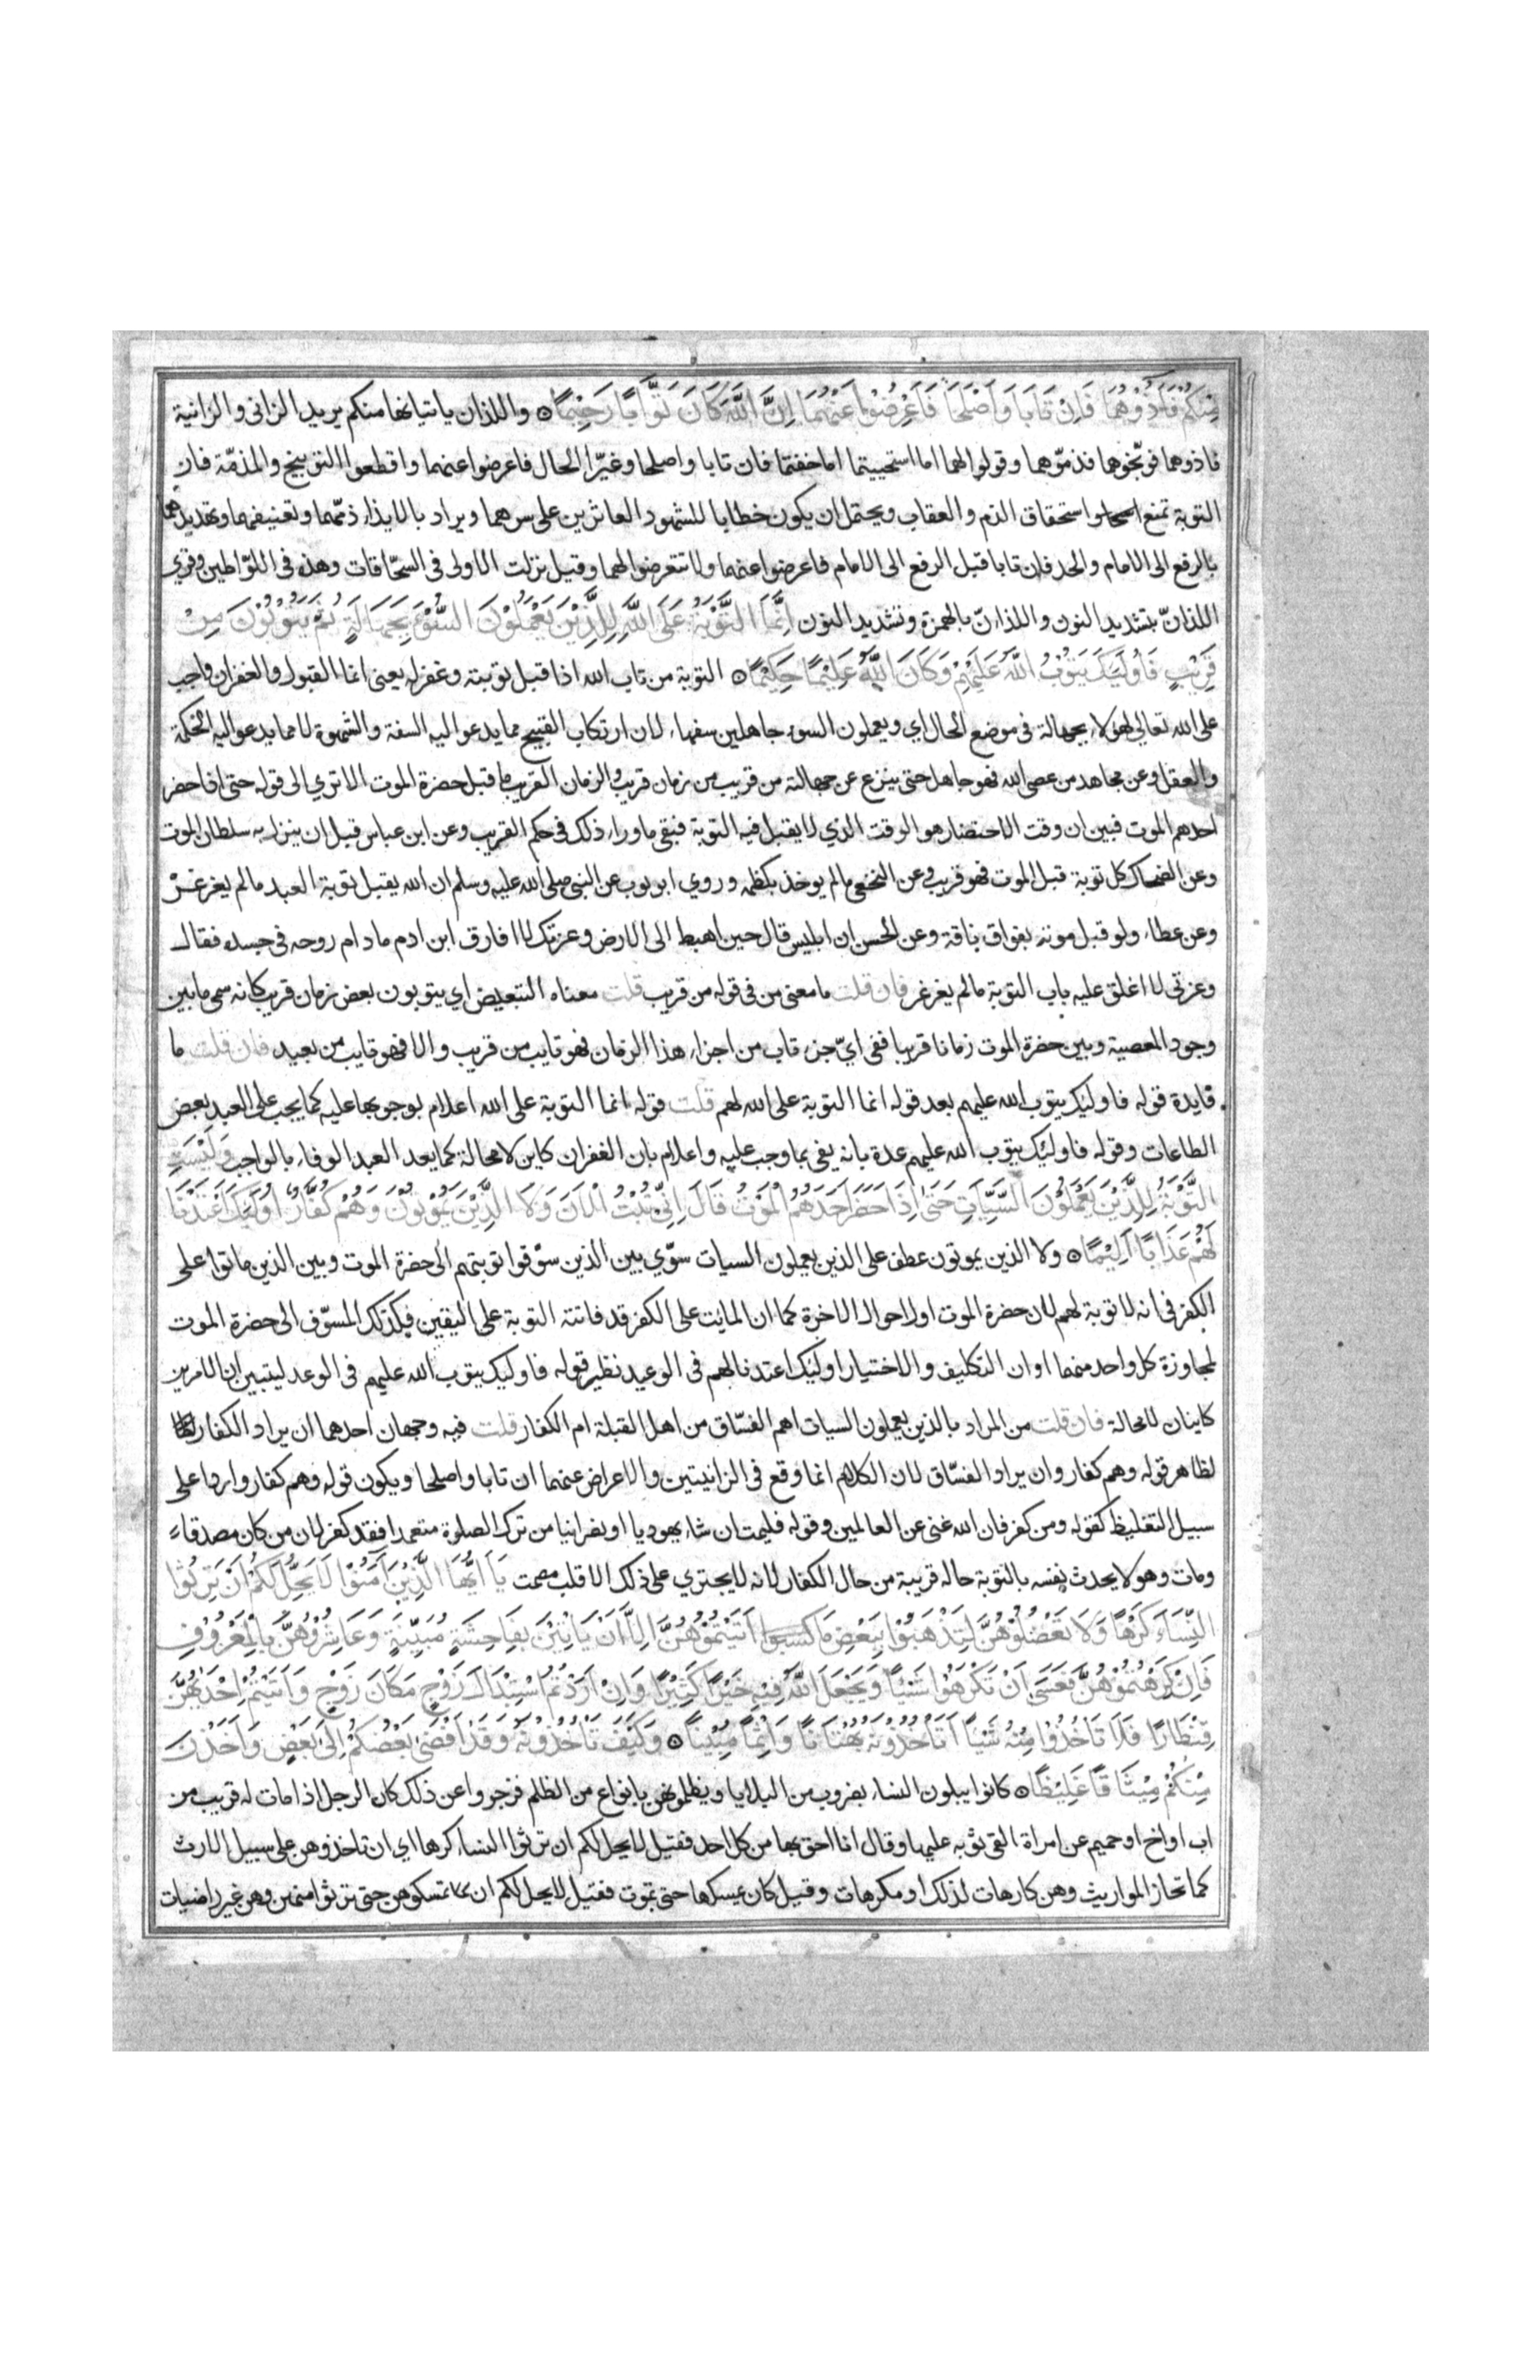 مِنْكُمْ فَآذُوْهُمَا فَاِنْ تَابَا وَاَصْلَحَا فَاَعْرِضُوْا عَنْهُمَا اِنَّ اللّٰهَ كَانَ تَوَّابًا رَحِيْمًا ۞ واللذان ياتيانها منكم يريد الزانى والزانية
فاذوهما فوبّخوهما فذمّوهما وقولوا لهما اما استحييتما اما خفتما فان تابا واصلحا وغيّرا الحال فاعرضوا عنهما واقطعوا التوبيخ والمذمّة فان
التوبة تمنع استحقاق الذم والعقاب ويحتمل ان يكون خطابا للشهود العاثرين على سرهما ويراد بالايذاء ذمّهما وتعنيفهما وتهديدهما
بالرفع الى الامام والحد فان تابا قبل الرفع الى الامام فاعرضوا عنهما ولا تتعرضوا لهما وقيل نزلت الاولى فى السحّاقات وهذه فى اللوّاطين وقرى
اللذانّ بتشديد النون واللذاۤنّ بالهمزة وتشديد النون اِنَّمَا التَّوْبَةُ عَلَى اللّٰهِ لِلَّذِيْنَ يَعْمَلُوْنَ السُّوْۤءَ بِجَهَالَةٍ ثُمَّ يَتُوْبُوْنَ مِنْ
قَرِيْبٍ فَاُولٰۤئِكَ يَتُوْبُ اللّٰهُ عَلَيْهِمْ وَكَانَ اللّٰهُ عَلِيْمًا حَكِيْمًا ۞ التوبة من تاب الله اذا قبل توبته وغفر له يعنى انما القبول والغفران واجب
على الله تعالى لهؤلاء بجهالة فى موضع الحال اي ويعملون السوء جاهلين سفهاء لان ارتكاب القبيح مما يدعو اليه السفة والشهوة لا مما يدعو اليه الحكمة
والعقل وعن مجاهد من عصى الله فهو جاهل حتى ينزع عن جهالته من قريب من زمان قريب والزمان القريب ما قبل حضرة الموت الا تري الى قوله حتى اذا حضر
احدهم الموت فبين ان وقت الاحتضار هو الوقت الذي لا يقبل فيه التوبة فبقى ما وراء ذلك فى حكم القريب وعن ابن عباس قبل ان ينزل به سلطان الموت
وعن الضحاك كل توبة قبل الموت فهو قريب وعن النخعى ما لم يوخذ بكظمه وروي ابو يوب عن النبى صلى الله عليه وسلم ان الله يقبل توبة العبد ما لم يغرغرْ
وعن عطاء ولو قبل موته بفواق ناقة وعن الحسن ان ابليس قال حين اهبط الى الارض وعزتك لا افارق ابن ادم ما دام روحه فى جسده فقال
وعزتى لا اغلق عليه باب التوبة ما لم يغرغر فان قلت ما معنى من فى قوله من قريب قلت معناه التبعيض اي يتوبون بعض زمان قريب كانه سمى ما بين
وجود المعصية وبين حضرة الموت زمانا قريبا ففى ايّ جزء تاب من اجزاء هذا الزمان فهو تايب من قريب والا فهو تايب من بعيد فان قلت ما
فايدة قوله فاوليك يتوب الله عليهم بعد قوله انما التوبة على الله لهم قلت قوله انما التوبة على الله اعلام بوجوبها عليه كما يجب على العبد بعض
الطاعات وقوله فاوليك يتوب الله عليهم عدة بانه يفى بما وجب عليه واعلام بان الغفران كاين لا محالة كما يعد العبد الوفاء بالواجب وَلَيْسَتِ
التَّوْبَةُ لِلَّذِيْنَ يَعْمَلُوْنَ السَّيِّاٰتِ حَتّٰى اِذَا حَضَرَ اَحَدَهُمُ الْمَوْتُ قَالَ اِنِّى تُبْتُ الْاٰنَ وَلَا الَّذِيْنَ يَمُوْتُوْنَ وَهُمْ كُفَّارٌ اُولٰۤئِكَ اَعْتَدْنَا
لَهُمْ عَذَابًا اَلِيْمًا ۞ ولا الذين يموتون عطف على الذين يعملون السيات سوّي بين الذين سوّفوا توبتهم الى حضرة الموت وبين الذين ماتوا على
الكفر فى انه لا توبة لهم لان حضرة الموت اول احوال الاخرة كما ان المائت على الكفر قد فاتته التوبة على اليقين فكذلك المسوّف الى حضرة الموت
لمجاوزة كل واحد منهما اوان التكليف والاختيار اوليك اعتدنا لهم فى الوعيد نظير قوله فاوليك يتوب الله عليهم فى الوعد ليتبين ان الامرين
كاينان لا محالة فان قلت من المراد بالذين يعملون السيات اهم الفسّاق من اهل القبلة ام الكفار قلت فيه وجهان احدهما ان يراد الكفار
لظاهر قوله وهم كفار وان يراد الفسّاق لان الكلام انما وقع فى الزانيين والاعراض عنهما ان تابا واصلحا ويكون قوله وهم كفار واردا على
سبيل التغليظ كقوله ومن كفر فان الله غنى عن العالمين وقوله فليمت ان شاء يهوديا او نصرانيا من ترك الصلوة متعمدا فقد كفر لان من كان مصدقاء
ومات وهو لا يحدث نفسه بالتوبة حاله قريبة من حال الكفار لانه لا يجتري على ذلك الا قلب مصمت يَاۤ اَيُّهَا الَّذِيْنَ اٰمَنُوْا لَا يَحِلُّ لَكُمْ اَنْ تَرِثُوا
النِّسَاۤءَ كَرْهًا وَلَا تَعْضُلُوْهُنَّ لِتَذْهَبُوْا بِبَعْضِ مَا كسبوا اٰتَيْتُمُوْهُنَّ اِلَّا اَنْ يَاْتِيْنَ بِفَاحِشَةٍ مُبَيِّنَةٍ وَعَاشِرُوْهُنَّ بِالْمَعْرُوْفِ
فَاِنْ كَرِهْتُمُوْهُنَّ فَعَسٰى اَنْ تَكْرَهُوْا شَيْئًا وَيَجْعَلَ اللّٰهُ فِيْهِ خَيْرًا كَثِيْرًا وَاِنْ اَرَدْتُمُ اسْتِبْدَالَ زَوْجٍ مَكَانَ زَوْجٍ وَاٰتَيْتُمْ اِحْدٰىهُنَّ
قِنْطَارًا فَلَا تَاْخُذُوْا مِنْهُ شَيْئًا اَتَاْخُذُوْنَهُ بُهْتَانًا وَاِثْمًا مُبِيْنًا ۞ وَكَيْفَ تَاْخُذُوْنَهُ وَقَدْ اَفْضٰى بَعْضُكُمْ اِلٰى بَعْضٍ وَاَخَذْنَ
مِنْكُمْ مِيْثَاقًا غَلِيْظًا ۞ كانوا يبلون النساء بضروب من البلايا ويظلمونهن بانواع من الظلم فزجروا عن ذلك كان الرجل اذا مات له قريب من
اب او اخ او حميم عن امراة القى ثوبه عليها وقال انا احق بها من كل احد فقيل لا يحل لكم ان ترثوا النساء كرها اي ان تاخذوهن على سبيل الارث
كما تحاز المواريث وهن كارهات لذلك او مكرهات وقيل كان يمسكها حتى تموت فقيل لا يحل لكم ان تمسكوهن حتى ترثوا منهن وهن غير راضيات